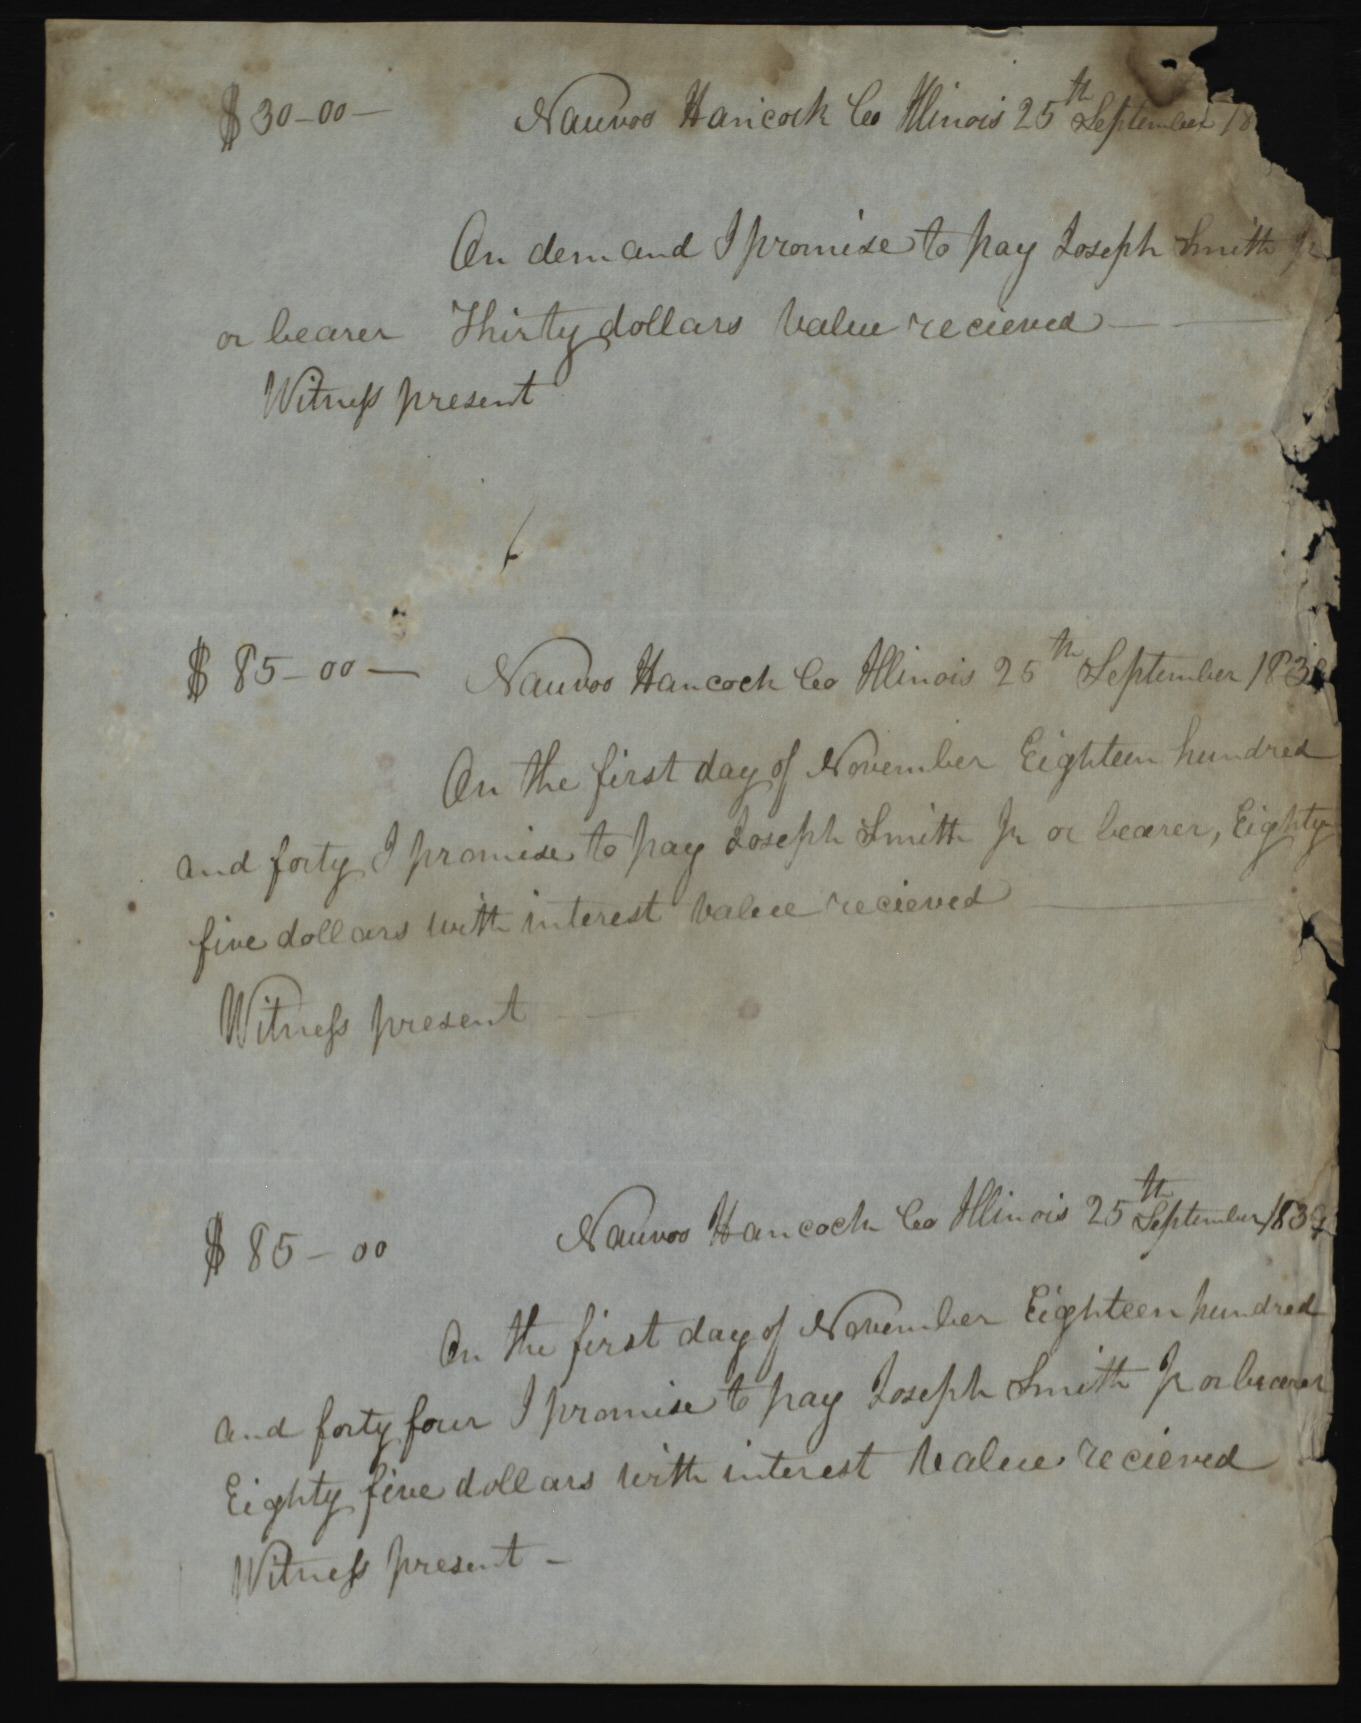 $30-00— Nauvoo Hancock Co Illinois 25th September 18
On demand I promise to pay Joseph Smith Jr
or bearer Thirty dollars value recieved — —
Witness present
$ 85-00— Nauvoo Hancock Co Illinois 25th September 1839
On the first day of November Eighteen hundred
and forty I promise to pay Joseph Smith Jr or bearer, Eighty
five dollars with interest value recieved —
Witness present —
$ 85-00 Nauvoo Hancock Co Illinois 25th September 1839
On the first day of November Eighteen hundred
and forty four I promise to pay Joseph Smith Jr or bearer
Eighty five dollars with interest value recieved
Witness present —